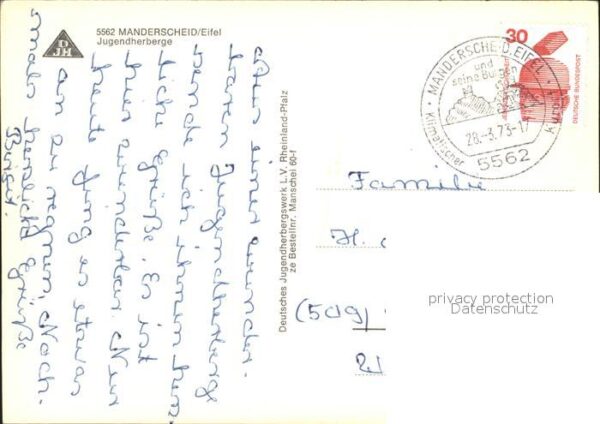 DJH
5562 MANDERSCHEID/Eifel
Jugendherberge
Aus einer wunder-
baren Jugendherberge
sende ich Ihnen herz
liche Grüße. Es ist
hier wunderbar. Nur
heute fing es etwas
an zu regnen. Noch-
mals herzliche Grüße
Birgit.
Deutsches Jugendherbergswerk L.V. Rheinland-Pfalz
ze Bestellnr. Manschei 60-f
30
DEUTSCHE BUNDESPOST
MANDERSCHEID, EIFEL
und
seine Burgen
28.-3.73-17
Klimatischer Kurort
5562
Familie
H.
(509)
privacy protection
Datenschutz